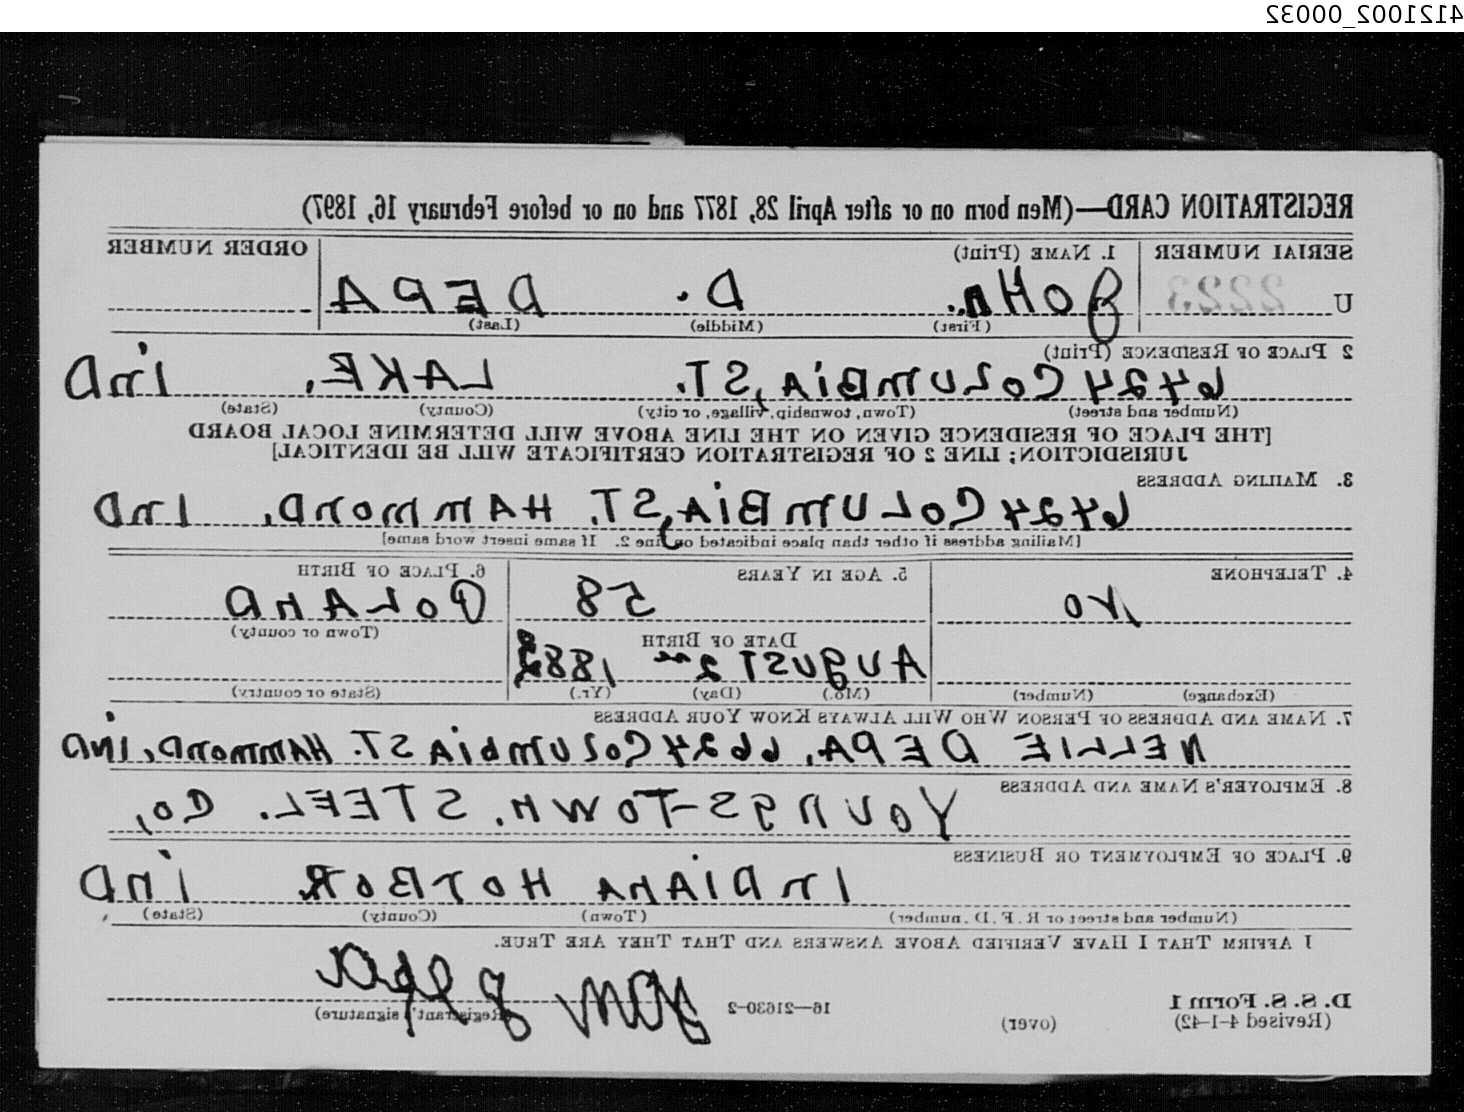 4121002_00032
REGISTRATION CARD—(Men born on or after April 28, 1877 and on or before February 16, 1897)
SERIAL NUMBER 1. NAME (Print) ORDER NUMBER
U 2223 JOHn. D. DEPA
(First) (Middle) (Last)
2 PLACE OF RESIDENCE (Print)
6424 COLUmBiA, ST. LAKE, inD
(Number and street) (Town, township, village, or city) (County) (State)
[THE PLACE OF RESIDENCE GIVEN ON THE LINE ABOVE WILL DETERMINE LOCAL BOARD
JURISDICTION; LINE 2 OF REGISTRATION CERTIFICATE WILL BE IDENTICAL]
3. MAILING ADDRESS
6424 COLUmBiA, ST. HAmmOnD, InD
[Mailing address if other than place indicated on line 2. If same insert word same]
4. TELEPHONE 5. AGE IN YEARS 6. PLACE OF BIRTH
no 58 POLAnD
DATE OF BIRTH (Town or county)
AUgUST 2 1883
(Exchange) (Number) (Mo.) (Day) (Yr.) (State or country)
7. NAME AND ADDRESS OF PERSON WHO WILL ALWAYS KNOW YOUR ADDRESS
NELLIE DEPA, 6624 COLUmbiA ST. HAmmOnD, inD
8. EMPLOYER'S NAME AND ADDRESS
YOUngS-TOWn. STEEL. CO,
9. PLACE OF EMPLOYMENT OR BUSINESS
InDIAnA HOrBOR inD
(Number and street or R. F. D. number) (Town) (County) (State)
I AFFIRM THAT I HAVE VERIFIED ABOVE ANSWERS AND THAT THEY ARE TRUE.
D. S. S. Form 1
(Revised 4-1-42) (over) 16—21630-2 (Registrant's signature)